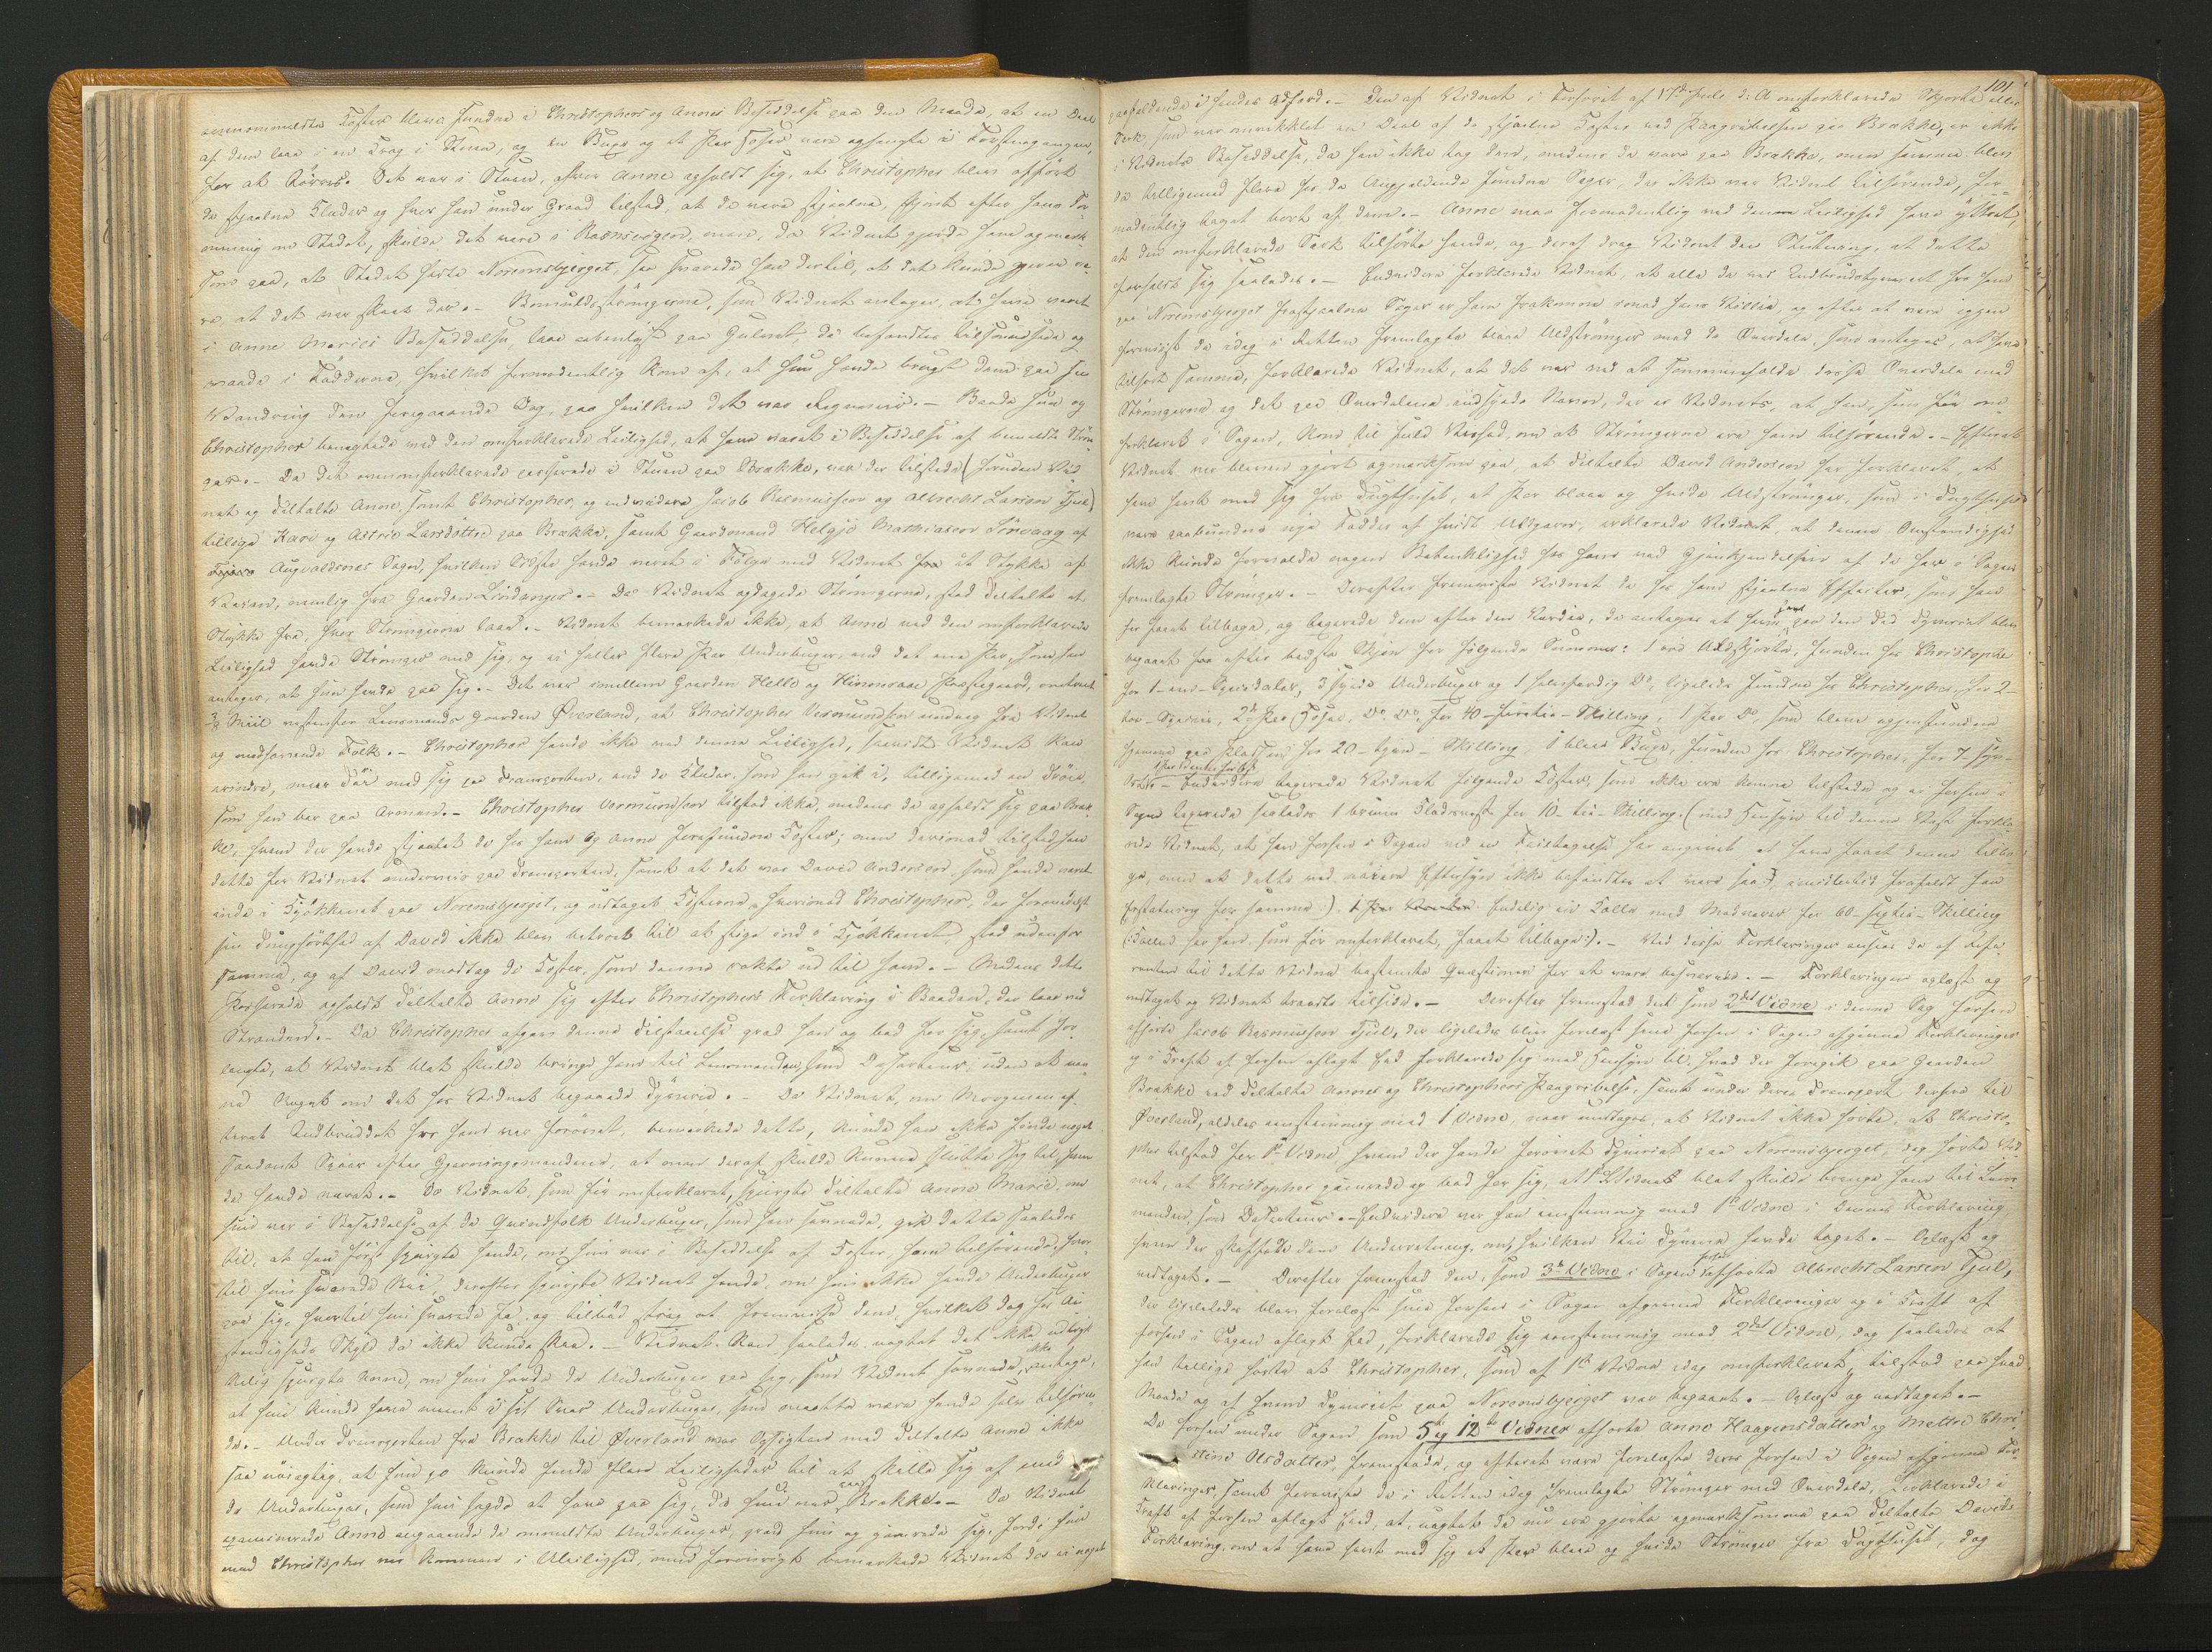 ovenommeldte Koster bleve fundne i Christophers og Annes Besiddelse paa den Maade, at en Deel
af dem laae i en Trog i Stuen, og en Buxe og et Par Hoser vare ophængte i
for at tørres. Det var i Stuen, hvor Anne opholdt sig, at Christopher blev afført
de stjaalne Klæder og hvor han under Graad tilstod, at de vare stjaalne, skjønt efter hans For
mening om Stedet, skulde det være i men, da Vidnet gjorde ham opmærk-
som paa, at Stedet hedte Noremsbjerget, saa svarede han dertil, at det kunde gjerne væ-
re at det var skeet der. - som Vidnet antager, at have været
i Anne Maries Besiddelse, laae aabenlyst paa Gulvet, de befandtes og
vaade i Fødderne, hvilket formodentlig kom af, at hun havde brugt dem paa sin
Vandring den foregaaende Dag, paa hvilken det var Regnveir. - Baade hun og
Christopher benegtede ved den omforklarede Leilighed, at have været i Besiddelse af bemeldte Strøm
per. - Da det ovenomforklarede passerede i Stuen paa Brække, var der tilstede (foruden Vid
net og Tiltalte Anne, samt Christopher, og endvidere Jacob Rasmussen og Albrecht Larsen Tjul)
tillige Kari og Astrie Larsdøttre paa Brække, samt Gaardmand Helgje Mathiassen Sørvaag af
Augvaldsnæs Sogn, hvilken Sidste havde været i Følge med Vidnet et Stykke af
Veien, nemlig fra Gaarden Lindanger. - Da Vidnet opdagede Strømperne, stod Tiltalte et
Stykke fra, hvor Strømperne laae. - Vidnet bemærkede ikke, at Anne ved den omforklarede
Leilighed havde Strømper med sig, og ei heller flere Par Underbuxer, end det ene Par, som han
antager, at hun havde paa sig. - Det var imellem Gaarden Hello og Præstegaard, omtrent
Miil vestenfor Lensmands Gaarden Øverland, at Christopher Vermundsen undveg fra Vidnet
og medfarende Folk. - Christopher havde ikke ved denne Leilighed, saavidt Vidnet kan
erindre, mere Tøi med sig paa Transporten, end de Klæder, som han gik i, tilligemed en Trøie,
som han bar paa Armen. - Christopher Vermundsen tilstod ikke, medens de opholdt sig paa Bræk
ke, hvem der havde stjaalet de hos ham og Anne forefundne Koster; men derimod tilstod han
dette for Vidnet underveis paa Transporten, samt at det var David Andersen, som havde været
inde i Kjøkkenet paa Noremsbjerget, og udtaget Kosterne, hvorimod Christopher, der formedelst
sin af David ikke blev betroet til at stige ind i Kjøkkenet, stod udenfor
samme, og af David modtog de Koster, som denne rakte ud til ham. - Medens dette
passerede opholdt Tiltalte Anne sig efter Christophers Forklaring i Baaden, der laae ved
Stranden. - Da Christopher afgav denne Tilstaaelse græd han og bad for sig, samt for-
langte, at Vidnet blot skulde bringe ham til Lensmanden som Deserteur, uden at næv
ne Noget om det hos Vidnet begaaede Tyverie. - Da Vidnet, om Morgenen ef-
terat Indbruddet hos ham var forøvet, bemærkede dette, kunde han ikke finde noget
saadant Spor efter Gjerningsmændene, at man deraf skulde kunne slutte sig til, hvem
de havde været. - Da Vidnet, som før omforklaret, spurgte Tiltalte Anne Marie om
hun var i Besiddelse af de Qvindfolk Underbuxer, som han savnede, gik dette saaledes
til, at han først spurgte hende, om hun var i Besiddelse af Koster, ham tilhørende, hvor-
til hun svarede Nei, derefter spurgte Vidnet hende, om hun ikke havde Underbuxer
paa sig, hvortil hun svarede Ja, og tilbød strax at fremvise dem, hvilket dog for An-
stændigheds Skyld da ikke kunde skee. - Vidnet kan saaledes, uagtet det ikke udtryk
kelig spurgte Anne, om hun havde de Underbuxer paa sig, som Vidnet savnede, ikke antage,
at hun kunde have meent i sit Svar Underbuxer, som maatte være hende selv tilhøren-
de. - Under Transporten fra Brække til Øverland var Opsigten med Tiltalte Anne ikke
saa nøiagtig, at hun jo kunde finde flere Leiligheder til at skille sig af med
de Underbuxer, som hun sagde at have paa sig, da hun var paa Brække. - Da Vidnet
examinerede Anne angaaende de ommeldte Underbuxer, græd hun og sig, fordi hun
med Christopher var kommen i Uleilighed, men forøvrigt bemærkede Vidnet der ei noget
101
paafaldende i hendes Adfærd. - Den af Vidnet i Forhøret af 17de Juli d: A omforklarede Skjorte eller
Særk, som var omvikklet en Deel af de stjaalne Koster ved Paagribelsen paa Brække, er ikke
i Vidnets Besiddelse, da han ikke tog den, medens de vare paa Brække, men samme blev
da tilligemed flere hos de Angjældende fundne Sager, der ikke var Vidnet tilhørende, for-
modentlig taget bort af dem. - Anne maae formodentlig ved denne Leilighed have yttret,
at den omforklarede Særk tilhørte hende, og deraf drog Vidnet den Slutning, at dette
forholdt sig saaledes. - Endvidere forklarede Vidnet, at alle de ved Indbrudstyveriet hos ham
paa Noremsbjerget frastjaalne Sager er ham frakomne imod hans Villie, og efter at være igjen
foreviist de idag i Retten fremlagte blaae Uldstrømper med de Overdele, som antages, at have
tilhørt samme, forklarede Vidnet, at det var ved at sammenholde disse Overdele med
Strømperne og det paa Overdelene udsyede Navn, der er Vidnets, at han, som før om-
forklaret i Sagen, kom til fuld Vished, om at Strømperne ere ham tilhørende. - Efterat
Vidnet var bleven gjort opmærksom paa, at Tiltalte David Andersen har forklaret, at
have havt med sig fra Tugthuset, et Par blaae og hvide Uldstrømper, som i Tugthuset
vare paabundne nye Fødder af hvidt Uldgarn, erklærede Vidnet, at denne Omstændighed
ikke kunde foranledige nogen Betænklighed hos ham ved Gjenkjendelsen af de her i Sagen
fremlagte Strømper. - Derefter fremviste Vidnet de hos ham stjaalne Effecter, som han
har faaet tilbage, og taxerede dem efter den Værdie, de antages at have havt paa den Tid Tyveriet blev
begaaet paa efter bedste Skjøn for følgende Summer: 1 rød Uldskjorte, funden hos Christopher
for 1 - een - Speciedaler, 3 syede Underbuxer og 1 halvfærdig Do, ligeledes fundne hos Christopher, for 2 -
to - Species, 2de Par Hoser, Do. Do. for 40 - førretie - Skilling, 1 Par Do, som bleve igjenfundne
hjemme paa for 20 - tyve - Skilling, 1 blaae Buxe, funden hos Christopher, for 7 - syv -
Ort. - Endvidere taxerede Vidnet følgende Koster, som ikke ere komne tilstede og ei forhen i
Sagen taxerede saaledes 1 bruun Vest for 10 - tie - Skilling. (med Hensyn til denne Vest forkla-
rede Vidnet, at han forhen i Sagen ved en Feiltagelse har angivet at have faaet denne tilba
ge, men at dette ved nøiere Eftersyn ikke befandtes at være saa, imidlertid frafaldt han
Erstatning for samme:). Endelig en Kolle med Madvarer for 60 - sextie - Skilling
(Kollen har han som før omforklaret, faaet tilbage:). - Ved disse Forklaringer ansees de af Refe
renten til dette Vidne bestemte Qvæstioner for at være besvarede. - Forklaringen oplæst og
vedtaget og Vidnet traadte tilside. - Derefter fremstod det som 2det Vidne i denne Sag forhen
afhørte Jacob Rasmussen Tjul, der ligeledes blev forelæst sine forhen i Sagen afgivne Forklaringer
og i Kraft af forhen aflagt Eed forklarede sig med Hensyn til, hvad der foregik paa Gaarden
Brække ved Tiltalte Annes og Christophers Paagribelse, samt under deres Transport derfra til
Øverland, aldeles eenstemmig med 1 Vidne, naar undtages, at Vidnet ikke hørte, at Christo-
pher tilstod for 1ste Vidne hvem der havde forøvet Tyveriet paa Noremsbjerget, dog hørte Vid
net, at Christopher og bad for sig, at 1ste Vidnet blot skulde bringe ham til Lens-
manden som Deserteur. - Endvidere var han eenstemmig med 1ste Vidne i Dennes Forklaring,
hvem der skaffede dem Underretning om, hvilken Vei Tyvene havde taget. - Oplæst og
vedtaget. - Derefter fremstod den, som 3de Vidne i Sagen forhen afhørte Albrecht Larsen Tjul,
der ligeledes blev forelæst sine forhen i Sagen afgivne Forklaringer og i Kraft af
forhen i Sagen aflagt Eed, forklarede sig eenstemmig med 2det Vidne, dog saaledes at
han tillige hørte at Christopher, som af 1ste Vidne idag omforklaret, tilstod paa hvad
Maade og af hvem Tyveriet paa Noremsbjerget var begaaet. - Oplæst og vedtaget. -
De forhen under Sagen som 5te og 12te Vidner afhørte Anne Haagensdatter og Mette Chri-
stine Olsdatter, fremstode, og efterat være forelæste deres forhen i Sagen afgivne For-
klaringer, samt foreviste de i Retten idag fremlagte Strømper med Overdele, forklarede i
Kraft af forhen aflagt Eed, at, uagtet de nu ere gjorte opmærksomme paa Tiltalte Davids
Forklaring, om at have havt med sig et Par blaae og hvide Strømper fra Tugthuset, dog